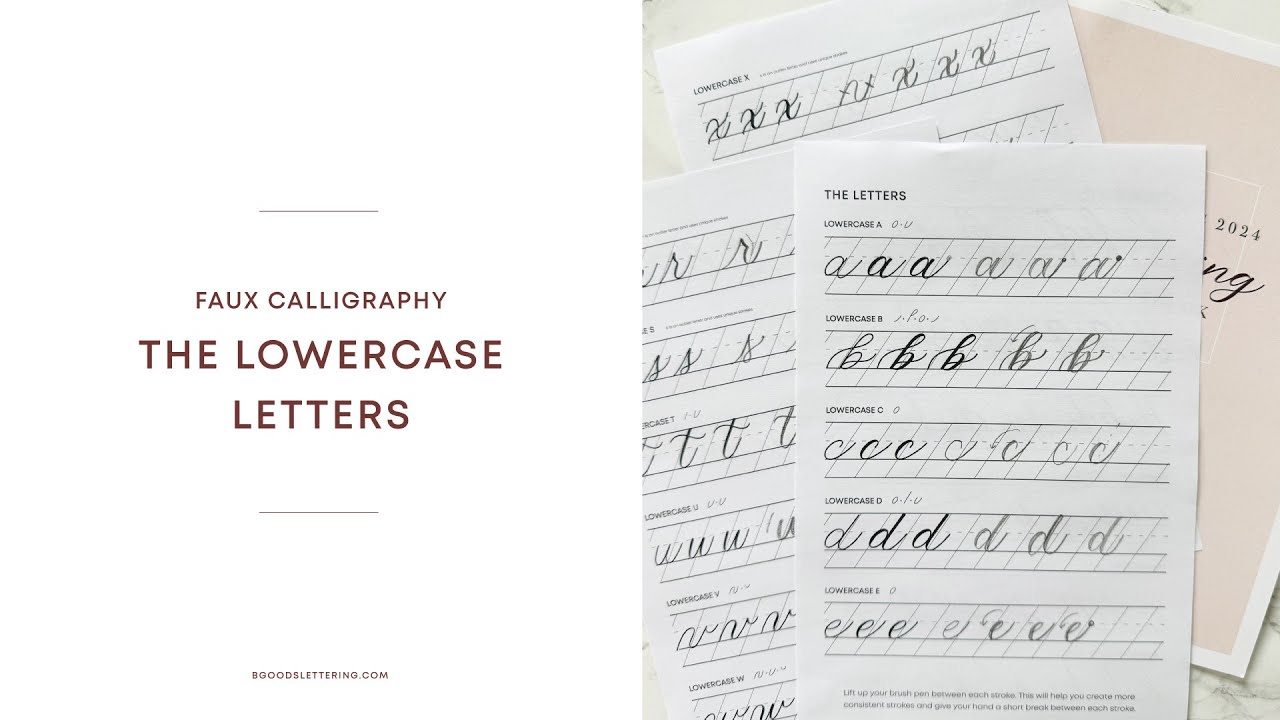 FAUX CALLIGRAPHY
THE LOWERCASE
LETTERS
BGOODSLETTERING.COM
LOWERCASE X
x x x x x x
r r
S
s s s
T
t t t
LOWERCASE U
u u u u
LOWERCASE V
v v v
LOWERCASE W
w w w
THE LETTERS
LOWERCASE A
a a a a a a
LOWERCASE B
b b b b b
LOWERCASE C
c c c c c c c
LOWERCASE D
d d d d d d
LOWERCASE E
e e e e e e e
Lift up your brush pen between each stroke. This will help you create more
consistent strokes and give your hand a short break between each stroke.
2024